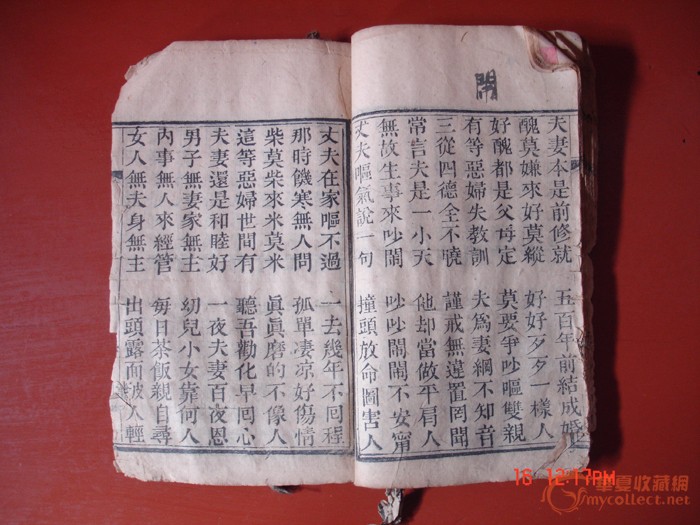 閙
夫妻本是前修就 五百年前結成婚
醜莫嫌來好莫縱 好好歹歹一樣人
好醜都是父母定 莫要爭吵嘔雙親
有等惡婦失教訓 夫爲妻綱不知音
三從四德全不曉 謹戒無違置罔聞
常言夫是一小天 他却當做平肩人
無故生事來吵閙 吵吵閙閙不安甯
丈夫嘔氣說一句 撞頭放命圖害人
丈夫在家嘔不過 一去幾年不囘程
那時饑寒無人問 孤單凄凉好傷情
柴莫柴來米莫米 眞眞磨的不像人
這等惡婦世間有 聽吾勸化早囘心
夫妻還是和睦好 一夜夫妻百夜恩
男子無妻家無主 幼兒小女靠何人
內事無人來經管 每日茶飯親自尋
女人無夫身無主 出頭露面被人輕
18 12:17PM
華夏收藏網
mycollect.net